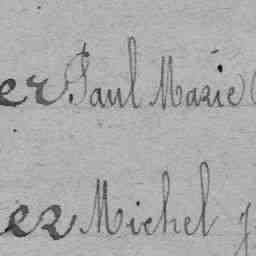 er Paul Marie
ez Michel J